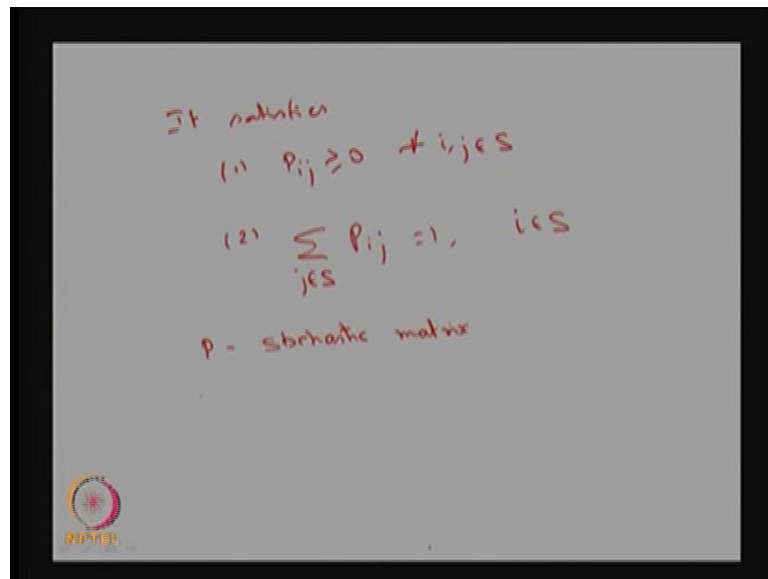 It satisfies
(1) Pij ≥ 0 ∀ i, j ∈ S
(2) ∑ Pij = 1, i ∈ S
j ∈ S
P - stochastic matrix
NPTEL